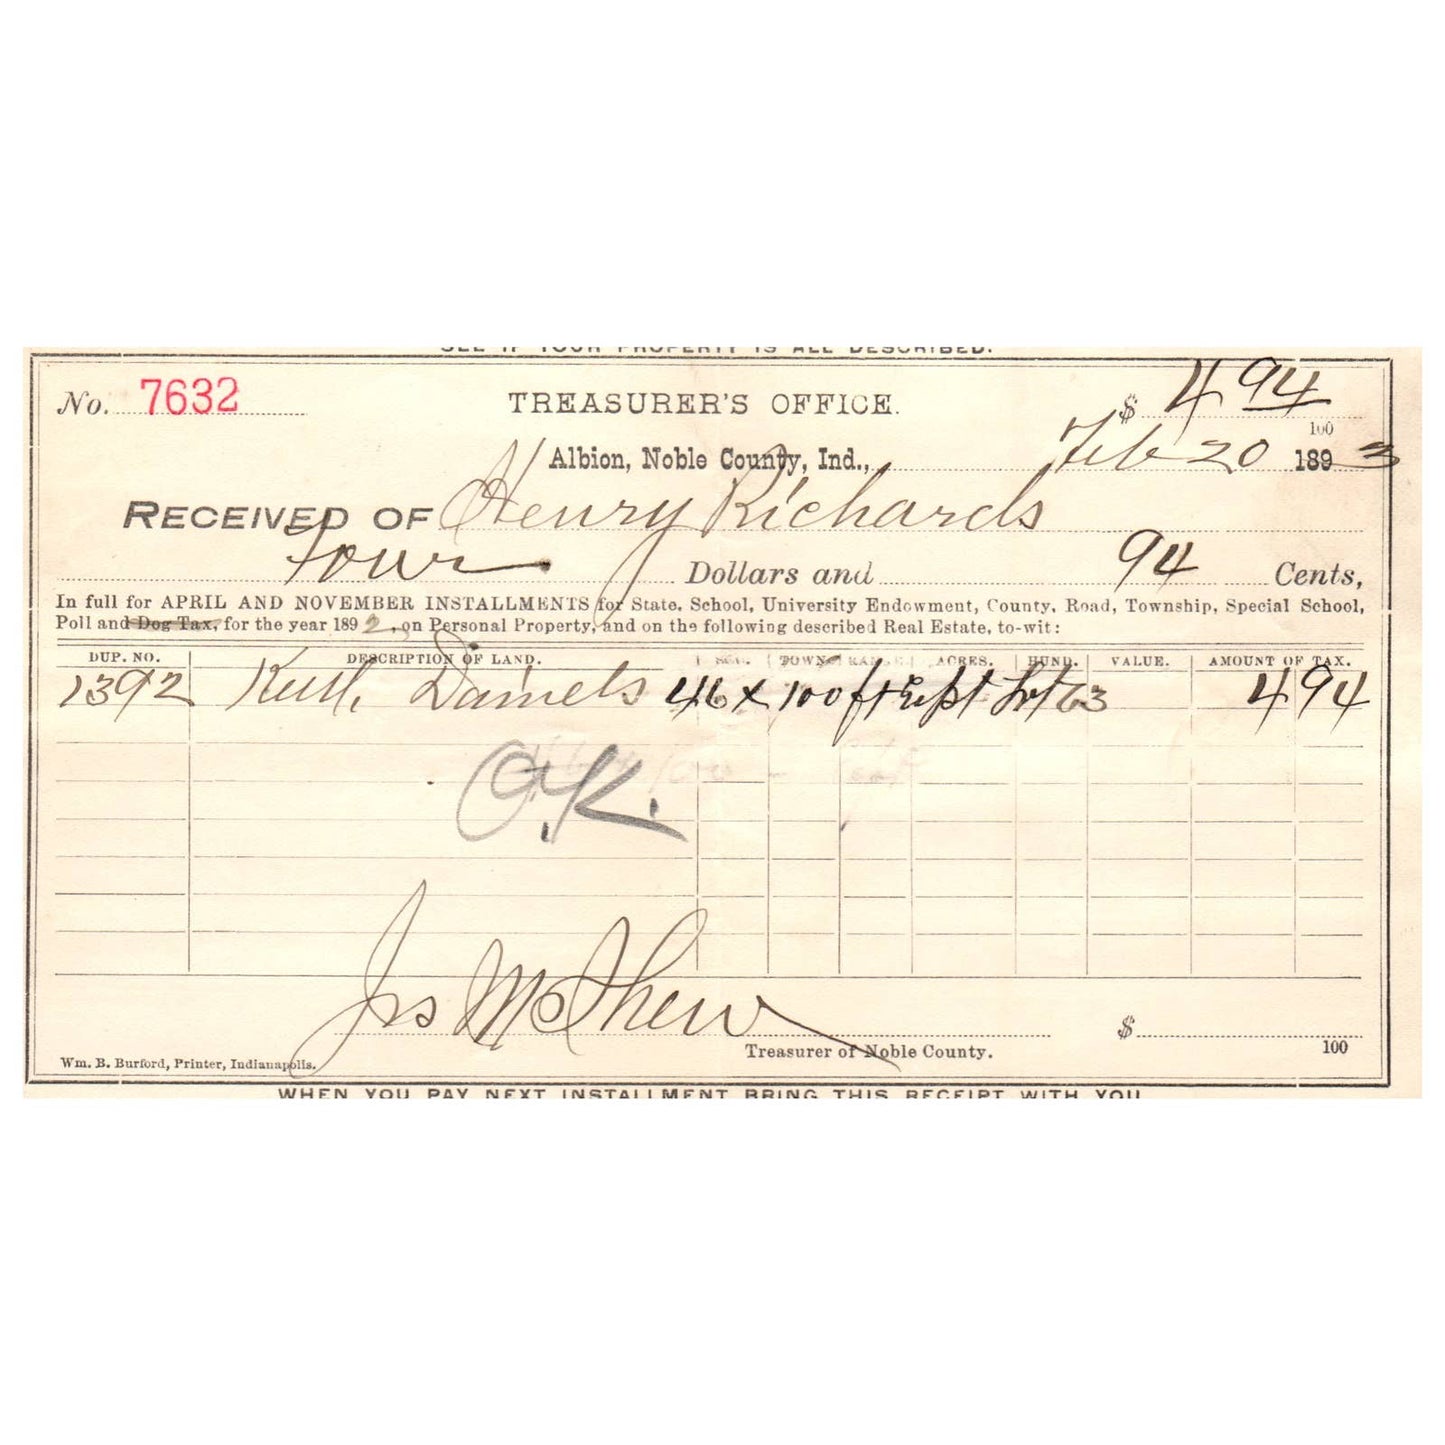 SEE IF YOUR PROPERTY IS ALL DESCRIBED.
No. 7632 TREASURER'S OFFICE. $ 4 94/100
Albion, Noble County, Ind., Feb 20 1893
RECEIVED OF Henry Richards
Four Dollars and 94 Cents,
In full for APRIL AND NOVEMBER INSTALLMENTS for State, School, University Endowment, County, Road, Township, Special School,
Poll and Dog Tax, for the year 1892, on Personal Property, and on the following described Real Estate, to-wit:
DUP. NO. DESCRIPTION OF LAND. SEC. TOWN. RANGE. ACRES. HUND. VALUE. AMOUNT OF TAX.
1392 Daniels 46 x 100 ft pt Lot 63 4 94
O.K.
Jas McShew
Treasurer of Noble County. $ 100
Wm. B. Burford, Printer, Indianapolis.
WHEN YOU PAY NEXT INSTALLMENT BRING THIS RECEIPT WITH YOU